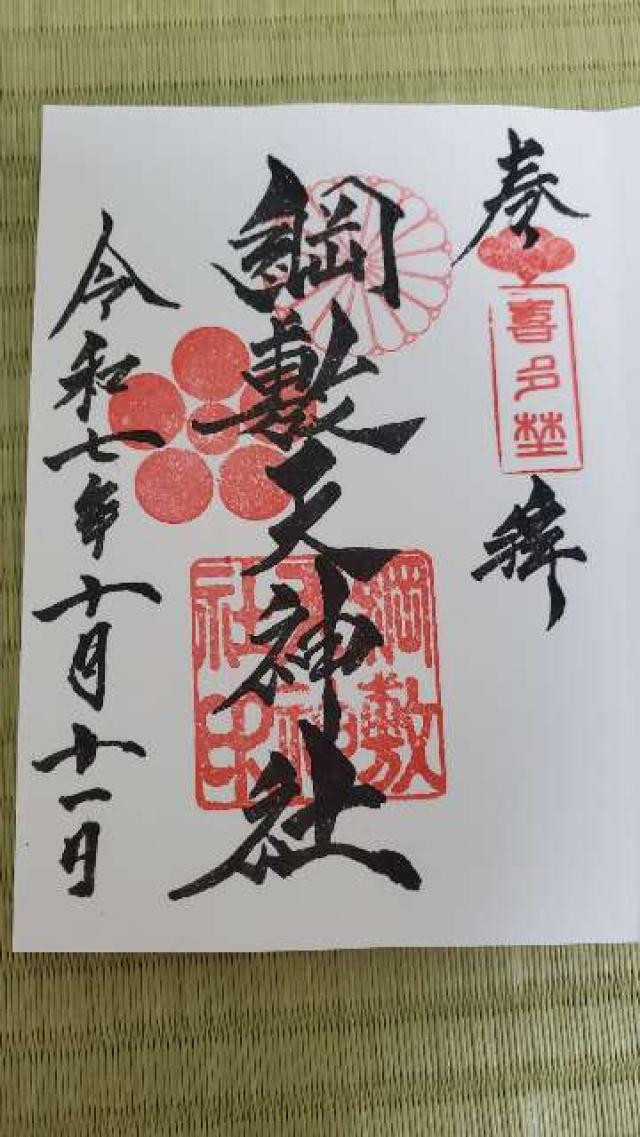 奉拝
喜多埜
綱敷天神社
綱敷天神社印
令和七年十月十一日